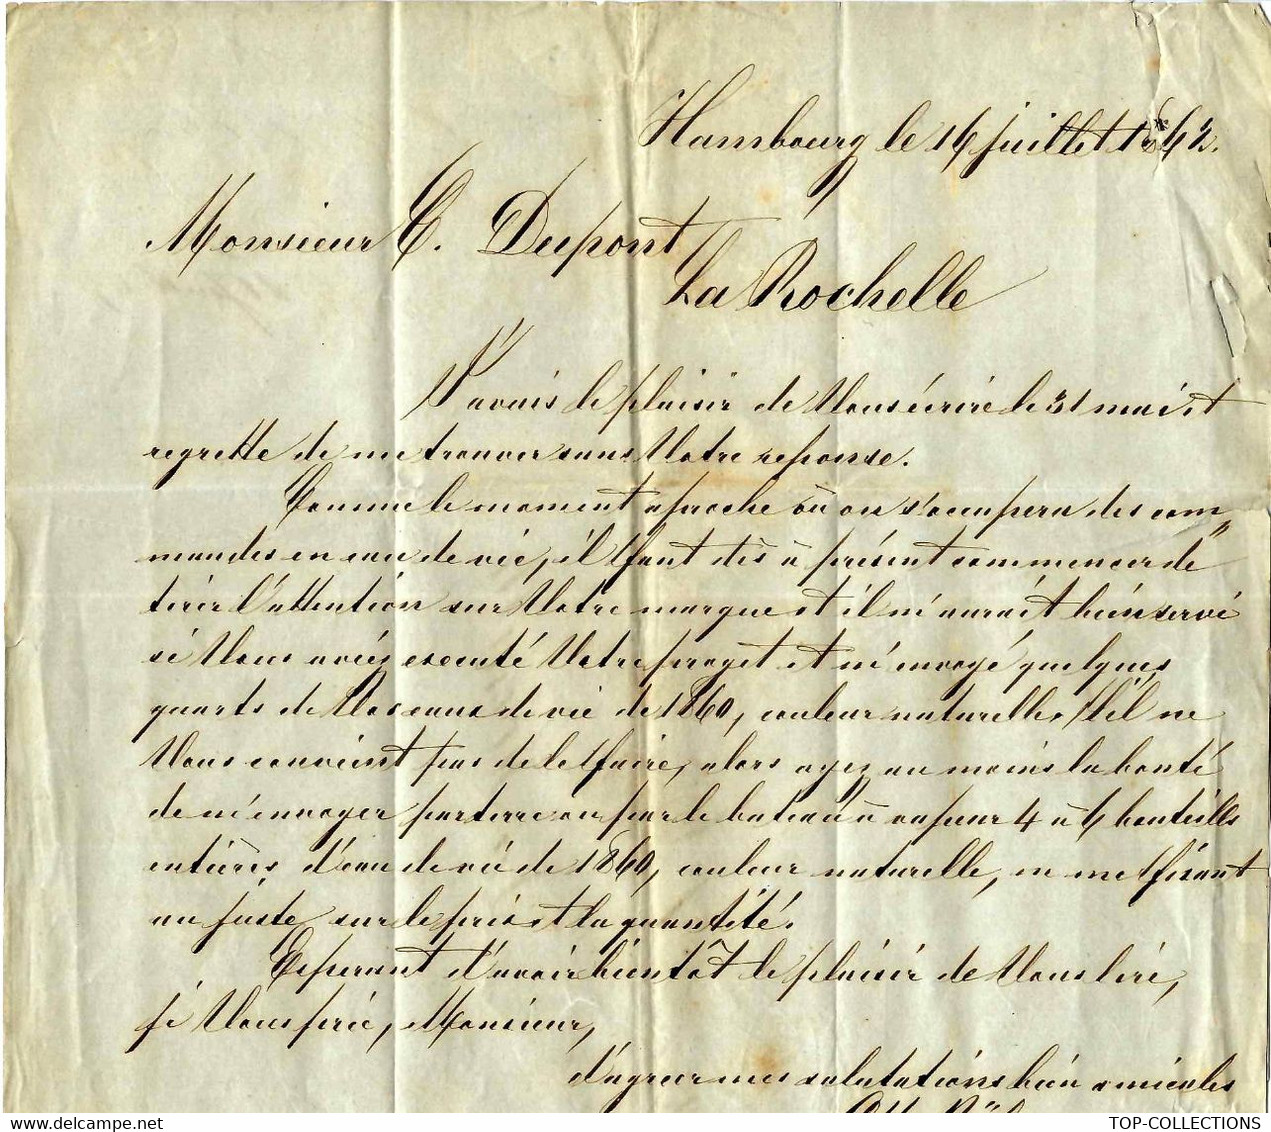 Hambourg le 16 juillet 1862.
Monsieur E. Dupont
La Rochelle
J'avais le plaisir de Vous écrire le 31 mai et
regrette de me trouver sans Votre reponse.
Comme le moment aproche où on s'occupera des com„
mandes en eau de vie, il faut dès à présent commencer de
tirer l'attention sur Votre marque et il m'aurait bien servi
si Vous aviez executé Votre projet et m'envoyé quelques
quarts de Vos eaux de vie de 1860, couleur naturelle. S'il ne
Vous convient pas de le faire, alors ayez au moins la bonté
de m'envoyer par terre ou par le bateau à vapeur 4 à 6 bouteills
entières d'eau de vie de 1860, couleur naturelle, en me fixant
au juste sur le prix et la quantité.
Esperant d'avoir bientôt le plaisir de Vous lire,
je Vous prie, Monsieur,
d'agreer mes salutations bien amicales
TOP-COLLECTIONS